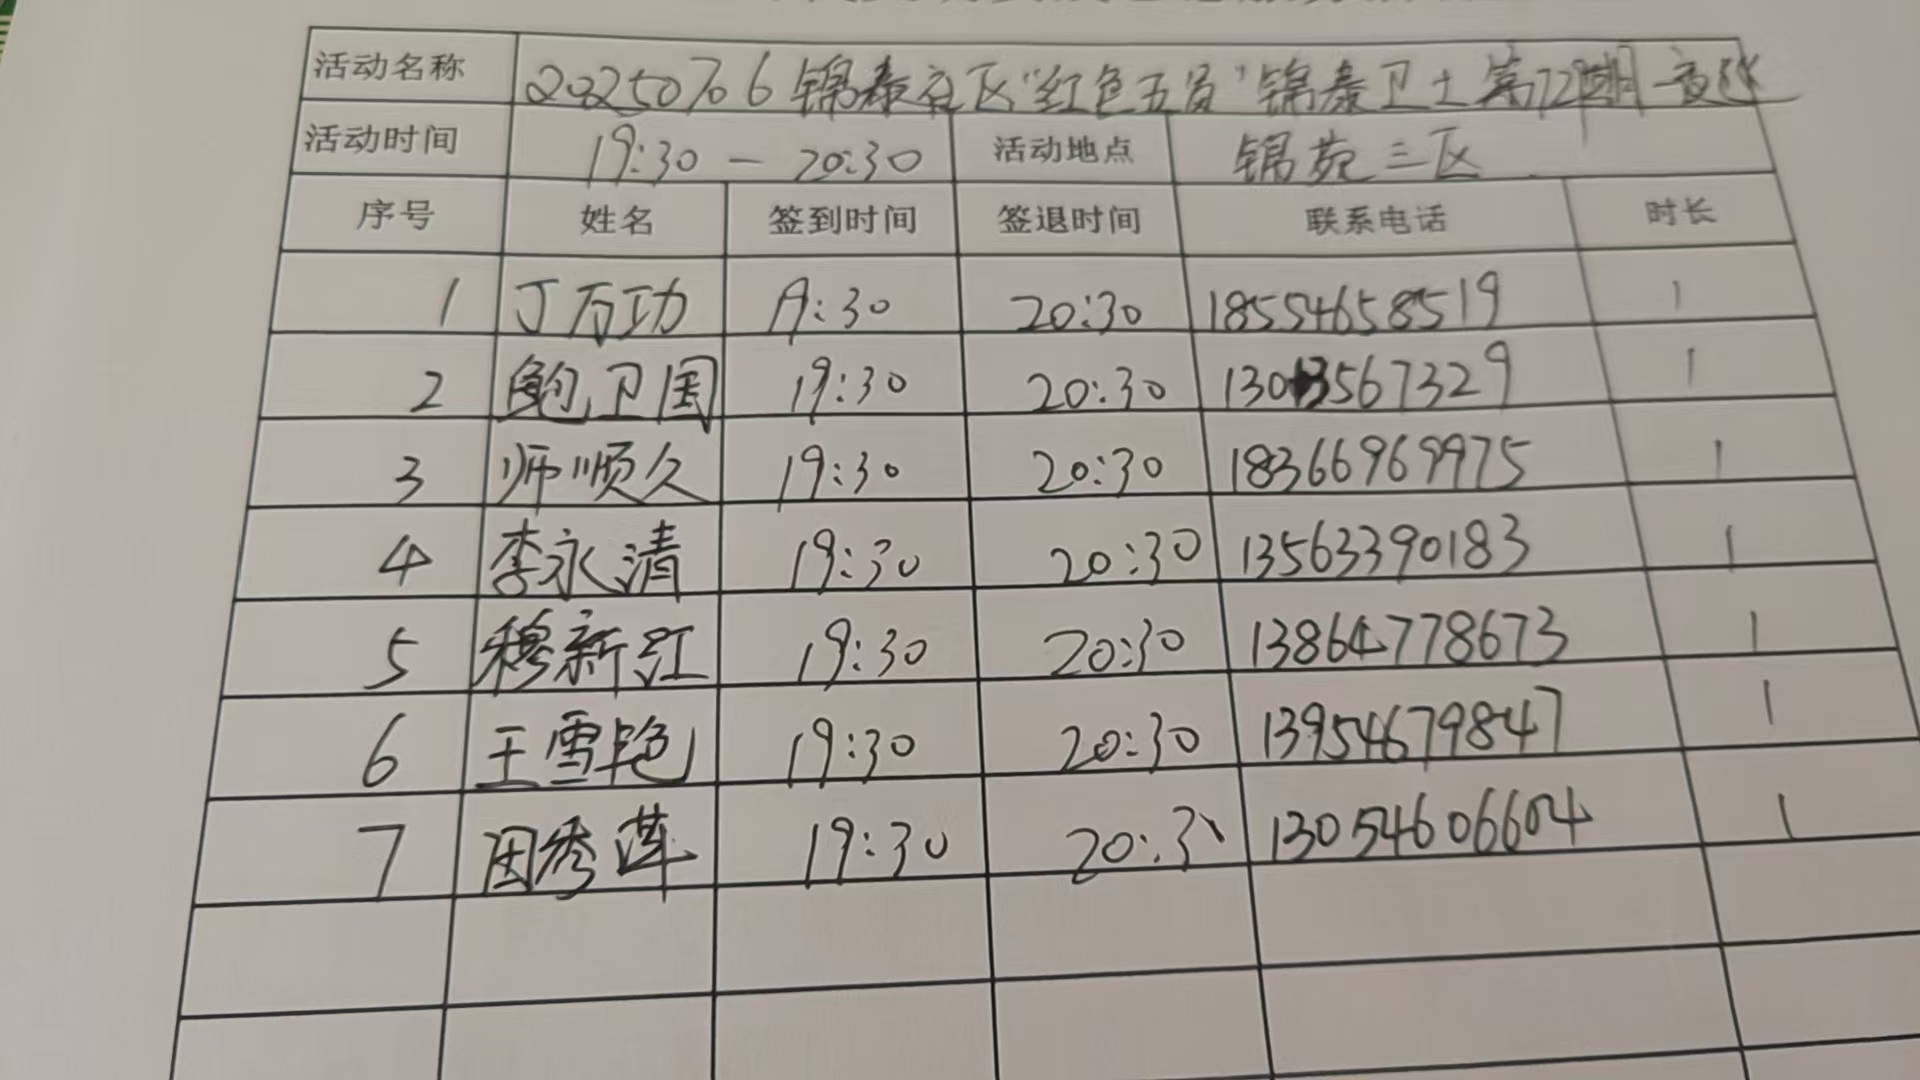 活动名称 20250706锦泰社区“红色五员”锦泰卫士第72期夜巡
活动时间 19:30 — 20:30 活动地点 锦苑三区
序号 姓名 签到时间 签退时间 联系电话 时长
1 丁万功 19:30 20:30 18554658519 1
2 鲍卫国 19:30 20:30 13013567329 1
3 师顺久 19:30 20:30 18366969975 1
4 李永清 19:30 20:30 13563390183 1
5 穆新红 19:30 20:30 13864778673 1
6 王雪艳 19:30 20:30 13954679847 1
7 田秀莲 19:30 20:30 13054606604 1